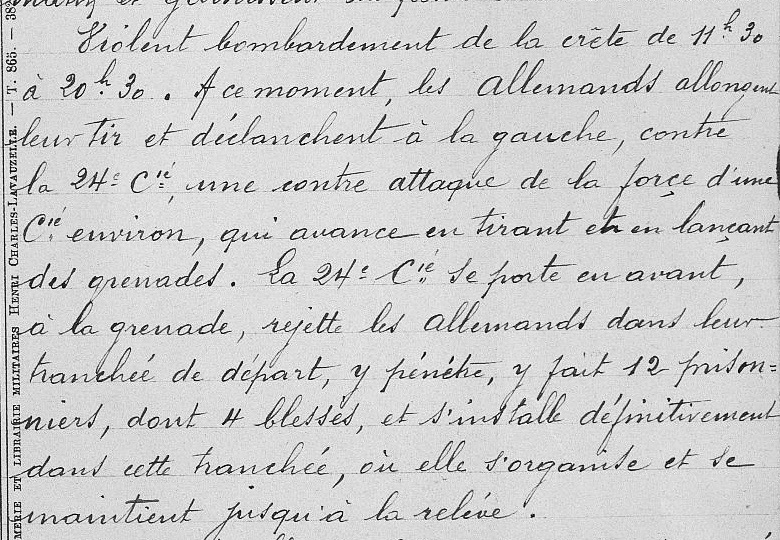 Violent bombardement de la crête de 11h 30
à 20h 30. A ce moment, les allemands allongent
leur tir et déclanchent à la gauche, contre
la 24e Cie, une contre attaque de la force d'une
Cie environ, qui avance en tirant et en lançant
des grenades. La 24e Cie se porte en avant,
à la grenade, rejette les allemands dans leur
tranchée de départ, y pénètre, y fait 12 prison=
niers, dont 4 blessés, et s'installe définitivement
dans cette tranchée, où elle s'organise et se
maintient jusqu'à la relève.
MERIE ET LIBRAIRIE MILITAIRES HENRI CHARLES-LAVAUZELLE. — T. 865. — 38